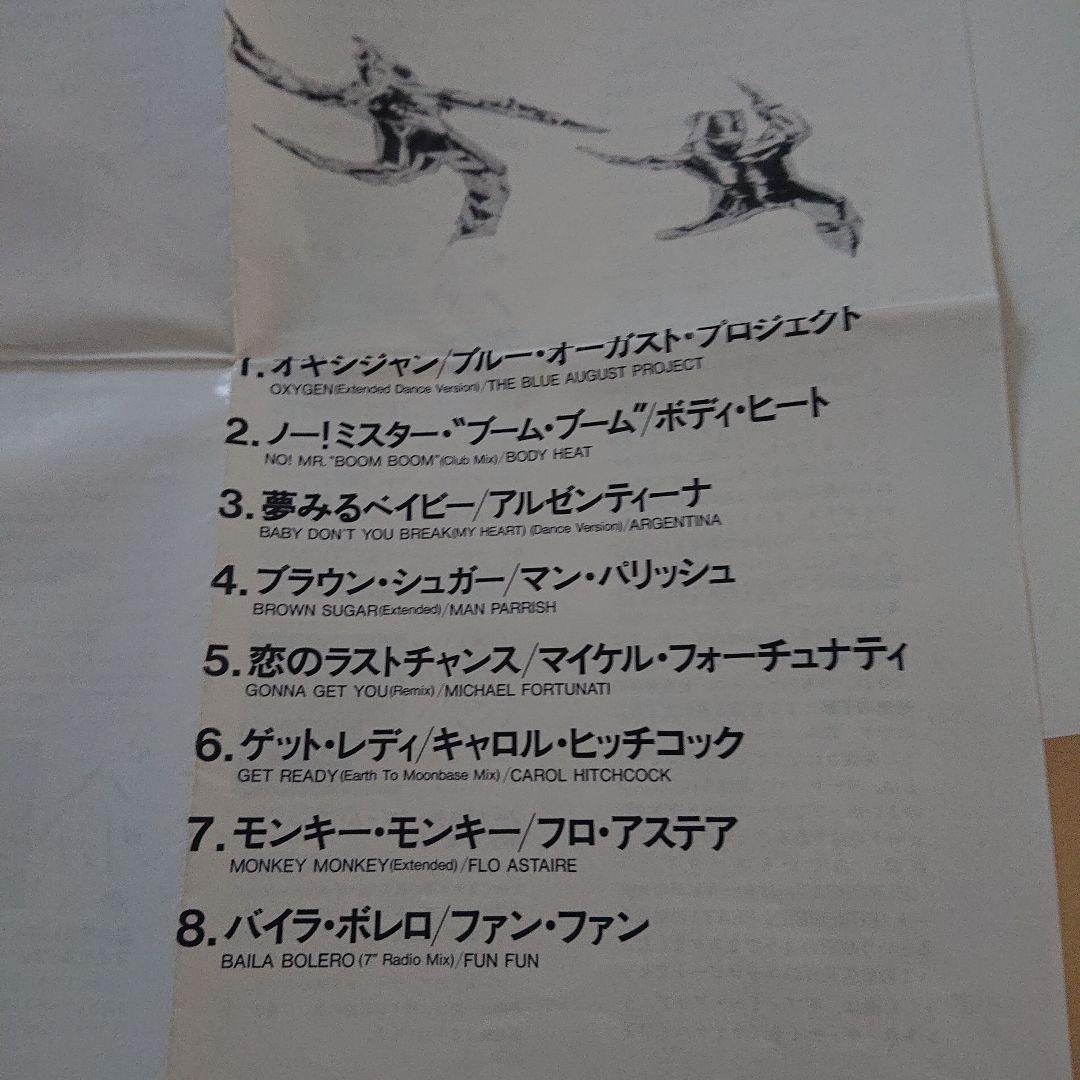 1.オキシジャン/ブルー・オーガスト・プロジェクト
OXYGEN(Extended Dance Version)/THE BLUE AUGUST PROJECT
2.ノー!ミスター・"ブーム・ブーム"/ボディ・ヒート
NO! MR. "BOOM BOOM"(Club Mix)/BODY HEAT
3.夢みるベイビー/アルゼンティーナ
BABY DON'T YOU BREAK(MY HEART) (Dance Version)/ARGENTINA
4.ブラウン・シュガー/マン・パリッシュ
BROWN SUGAR(Extended)/MAN PARRISH
5.恋のラストチャンス/マイケル・フォーチュナティ
GONNA GET YOU(Remix)/MICHAEL FORTUNATI
6.ゲット・レディ/キャロル・ヒッチコック
GET READY(Earth To Moonbase Mix)/CAROL HITCHCOCK
7.モンキー・モンキー/フロ・アステア
MONKEY MONKEY(Extended)/FLO ASTAIRE
8.バイラ・ボレロ/ファン・ファン
BAILA BOLERO(7" Radio Mix)/FUN FUN